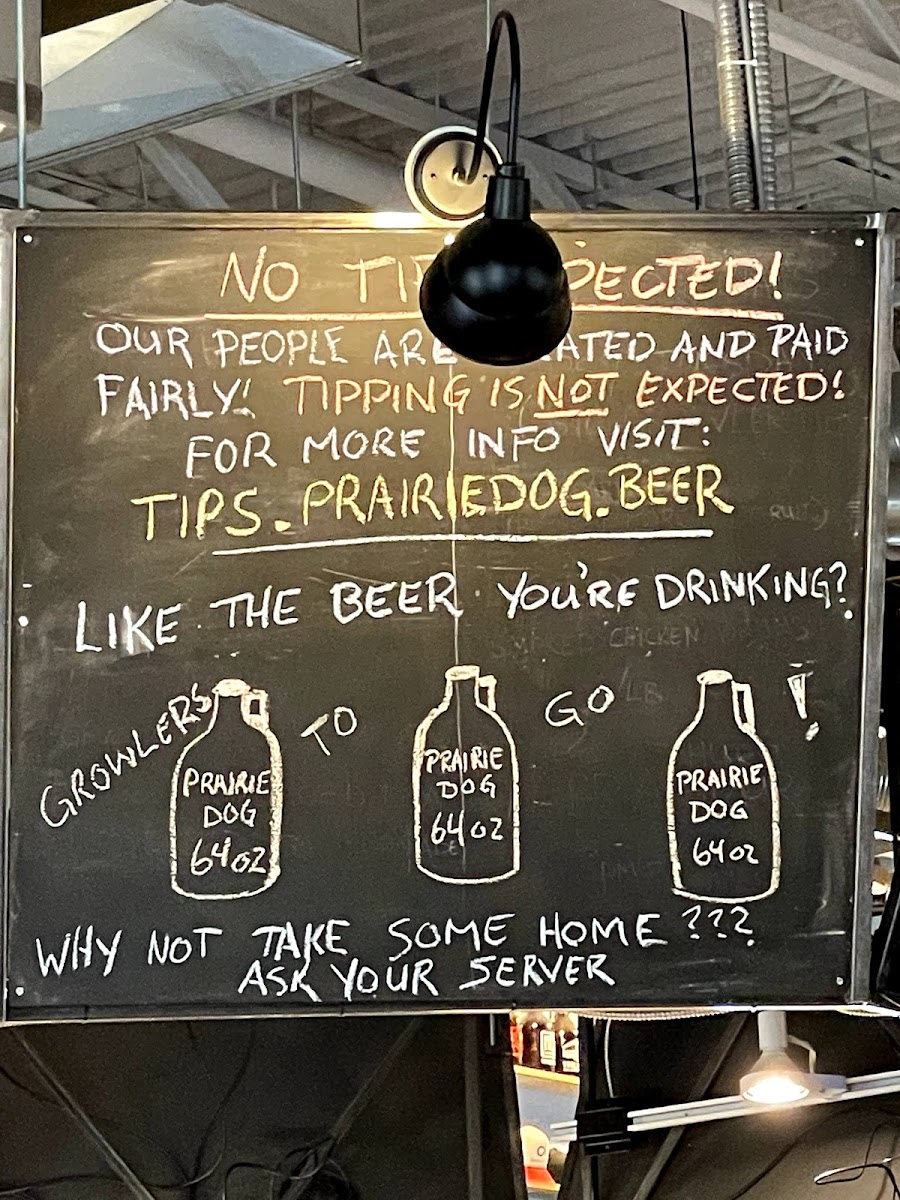 NO TIP PECTED!
OUR PEOPLE ARE ATED AND PAID
FAIRLY! TIPPING IS NOT EXPECTED!
FOR MORE INFO VISIT:
TIPS.PRAIRIEDOG.BEER
LIKE THE BEER YOU'RE DRINKING?
GROWLERS TO GO !
PRAIRIE
DOG
64oz
PRAIRIE
DOG
64oz
PRAIRIE
DOG
64oz
WHY NOT TAKE SOME HOME???
ASK YOUR SERVER
CHICKEN